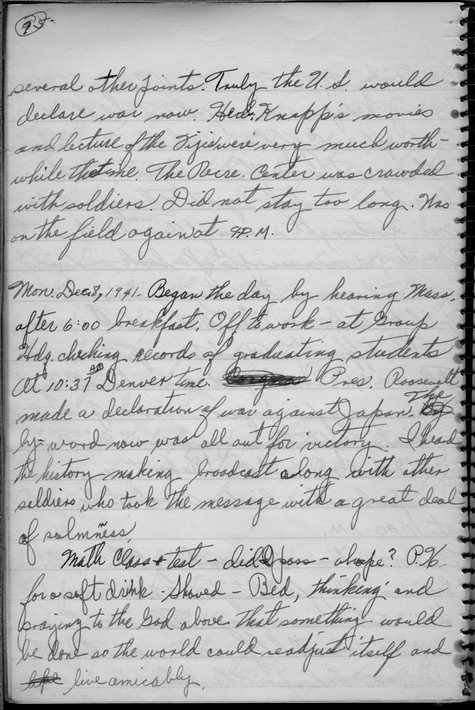 95.
several other joints. Truly the U.S. would
declare war now. Knapp's movies
and lecture of the were very much worth-
while the time. The Recre. Center was crowded
with soldiers. Did not stay too long. Was
on the field again at P.M.
Mon. Dec. 8, 1941. Began the day by hearing Mass,
after 6:00 breakfast. Off to work - at Group
Hdq. checking records of graduating students
At 10:37 AM Denver time. Pres. Roosevelt
made a declaration of war against Japan. The
by-word now was all out for victory. I heard
the history making broadcast along with other
soldiers who took the message with a great deal
of calmness.
Math Class + test - did I pass - a hope? P.X
for a soft drink - Shaved - Bed, thinking and
praying to the God above that something would
be done so the world could readjust itself and
live amicably.